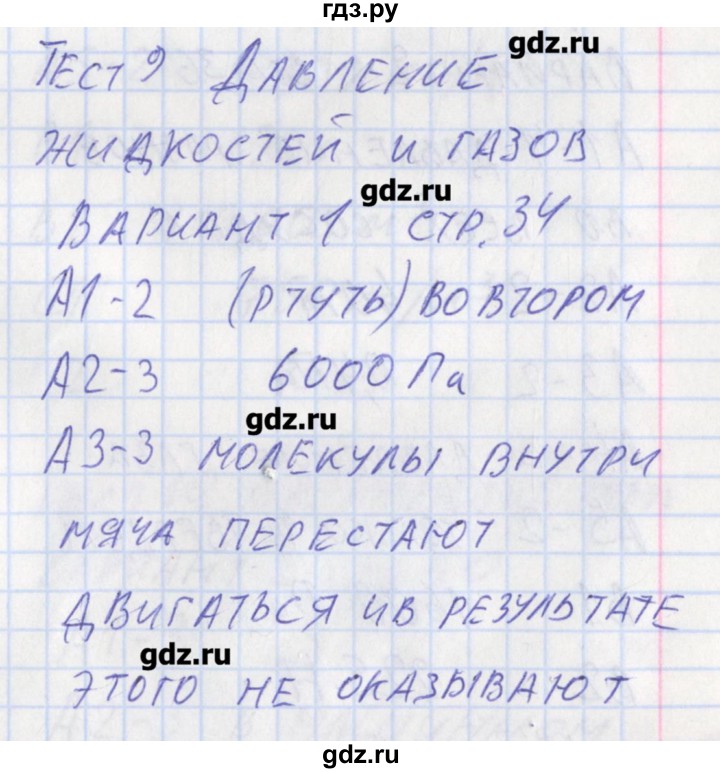 гдз.ру
gdz.ru
ТЕСТ 9 ДАВЛЕНИЕ
ЖИДКОСТЕЙ И ГАЗОВ
gdz.ru
ВАРИАНТ 1 СТР. 34
А1-2 (РТУТЬ) ВО ВТОРОМ
А2-3 6000 Па
gdz.ru
А3-3 МОЛЕКУЛЫ ВНУТРИ
МЯЧА ПЕРЕСТАЮТ
ДВИГАТЬСЯ И В РЕЗУЛЬТАТЕ
gdz.ru
ЭТОГО НЕ ОКАЗЫВАЮТ
gdz.ru